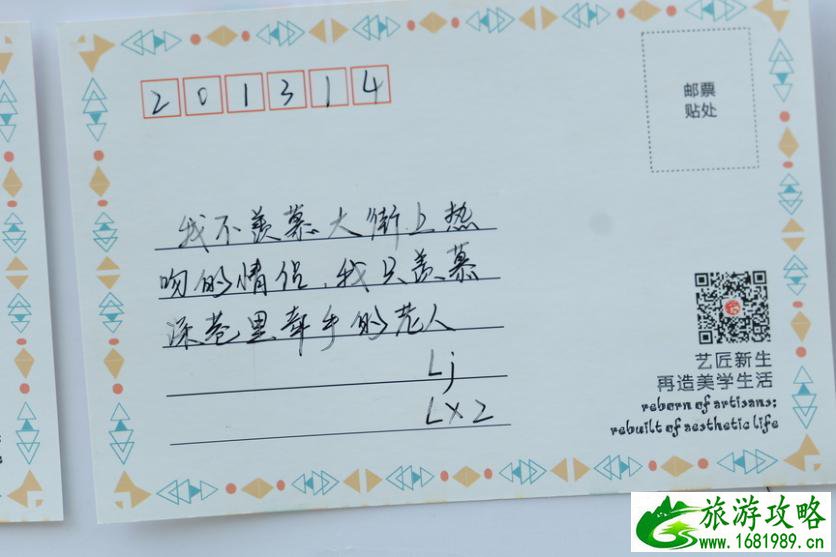 201314
邮票
贴处
我不羡慕大街上热
吻的情侣,我只羡慕
深巷里牵手的老人
Lj
LXZ
艺匠新生
再造美学生活
reborn of artisans:
rebuilt of aesthetic life
旅游攻略
www.1681989.cn